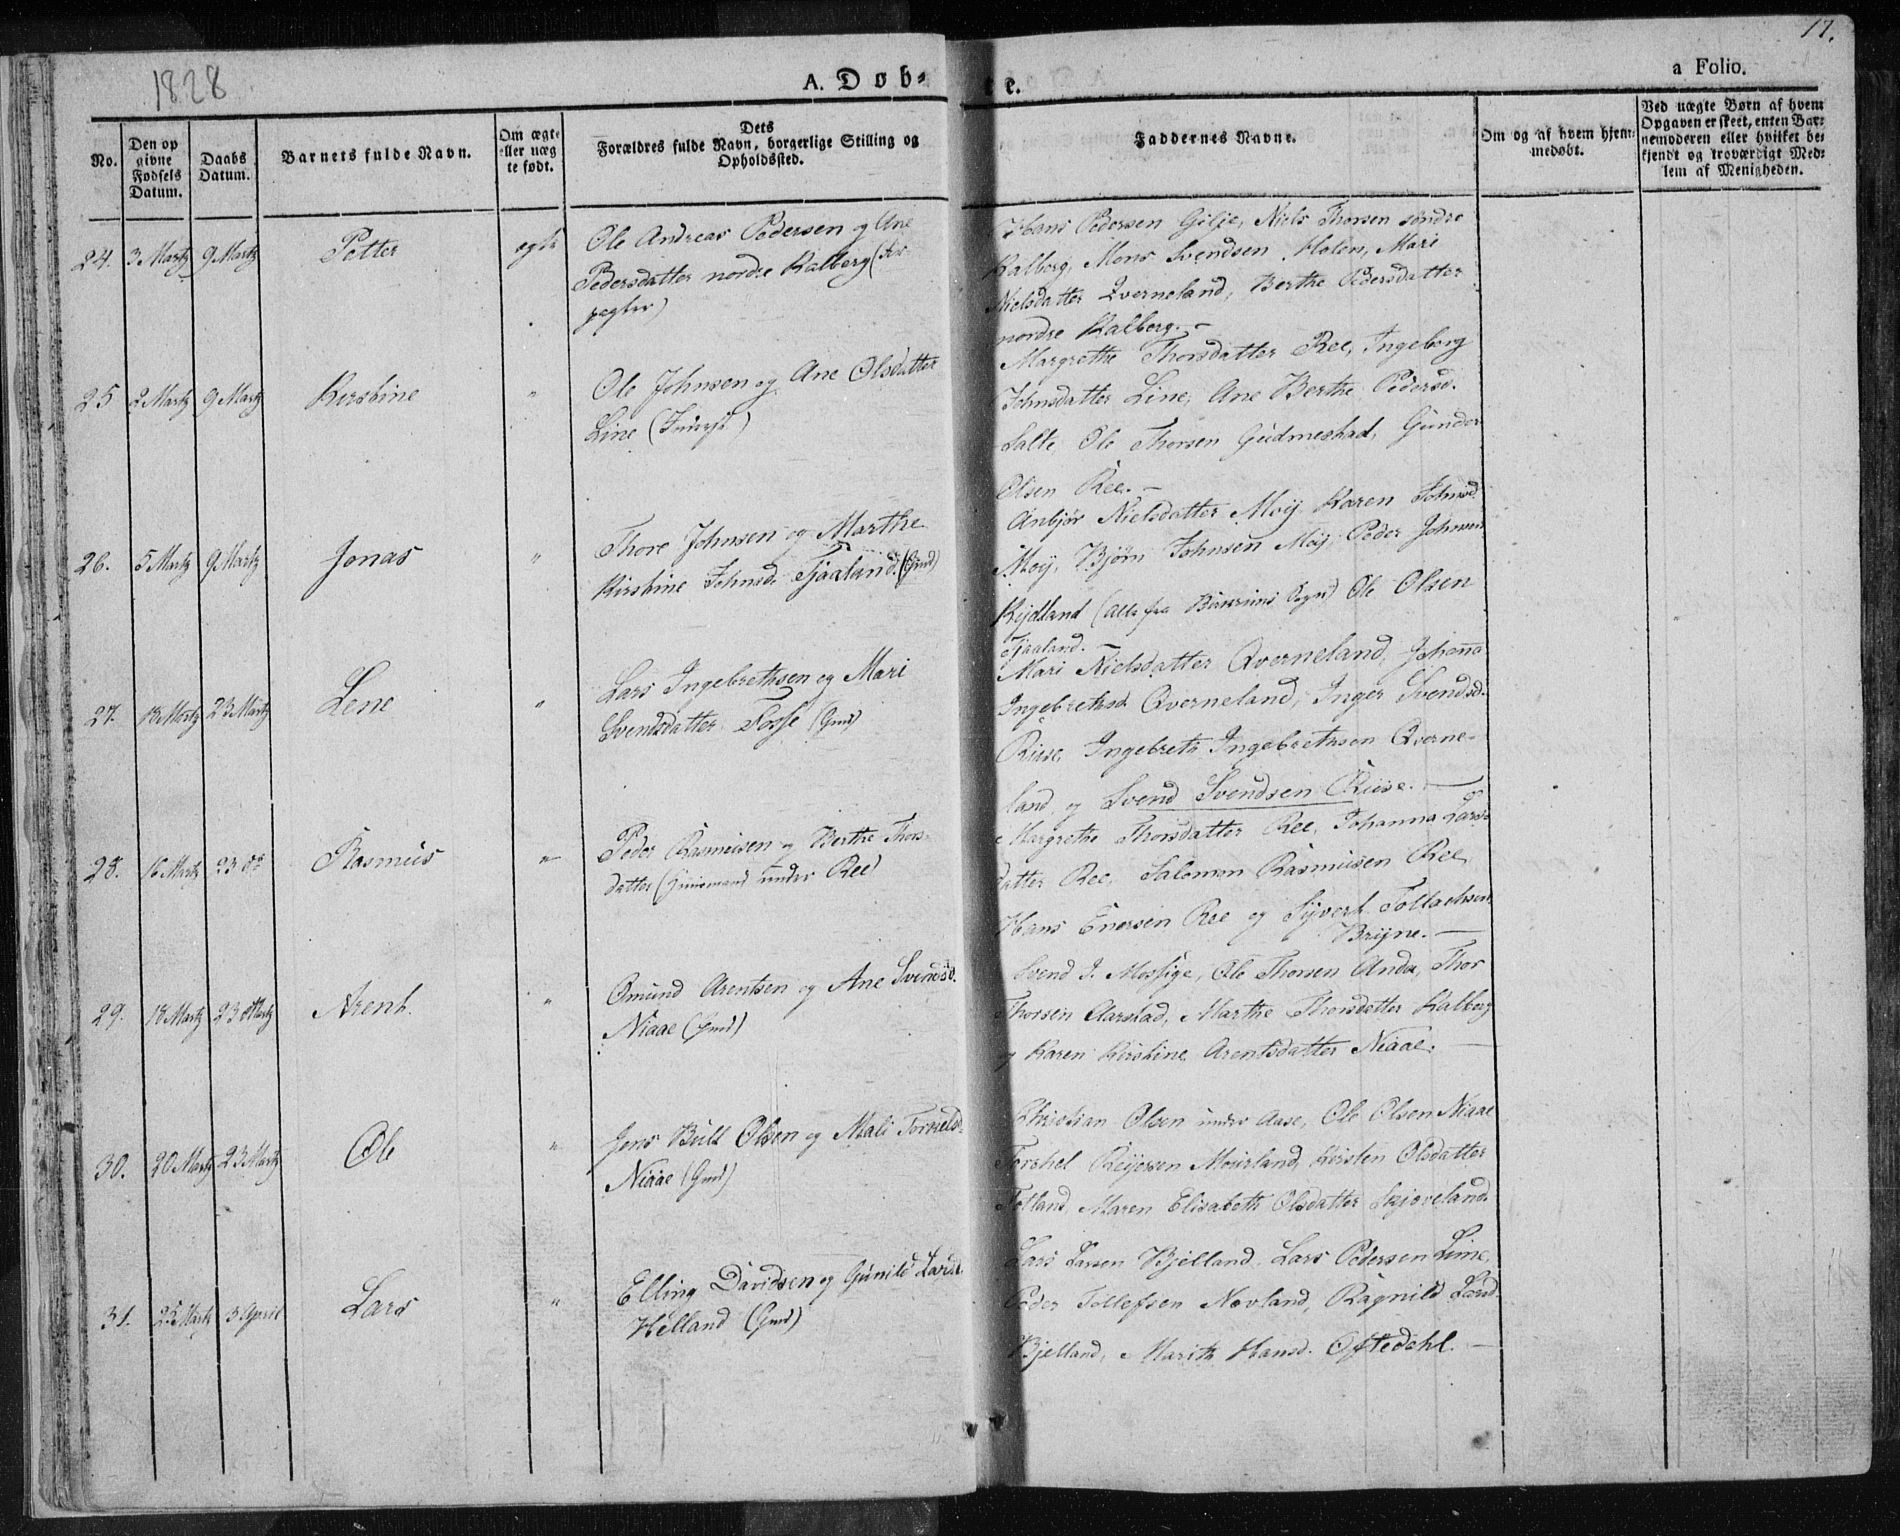 17.
1828
A. Døb-
te.
a Folio.
No.
Den op
givne
Fødsels
Datum.
Daabs
Datum.
Barnets fulde Navn.
Om ægte
eller uæg
te født.
Dets
Forældres fulde Navn, borgerlige Stilling og
Opholdssted.
Faddernes Navne.
Om og af hvem hjem-
medøbt.
Ved uægte Børn af hvem
Opgaven er skeet, enten Bar-
nemoderen eller hvilket be-
kjendt og troværdigt Med-
lem af Menigheden.
24. 3 Martz 9 Martz Petter ægte
Ole Andreas Pedersen og Ane
Pedersdatter nordre Kalberg (For
pagter)
Hans Pedersen Gilje, Niels Thorsen søndre
Kalberg, Mons Svendsen Holen, Mari
Nielsdatter Qverneland, Berthe Pedersdatter
nordre Kalberg. -
25 2 Martz 9 Martz Kirstine "
Ole Johnsen og Ane Olsdatter
Line
Margrethe Thorsdatter Ree, Ingeborg
Johnsdatter Line, Ane Berthe Pedersd.
Salte, Ole Thorsen Gudmestad, Gunder
Olsen Ree. -
26. 5 Martz 9 Martz Jonas "
Thore Johnsen og Marthe
Kirstine Johnsd. Tjaaland. (Gmd)
Anbjør Nielsdatter Moij Karen Johnsd.
Moij, Bjørn Johnsen Moij, Peder Johnsen
Rijdland (alle fra Sogn) Ole Olsen
Tjaaland. -
27. 18 Martz 23 Martz Lene "
Lars Ingebrethsen og Mari
Svendsdatter Fosse (Gmd)
Mari Nielsdatter Qverneland, Johanna
Ingebrethsd. Qverneland, Inger Svendsd.
Riise, Ingebreth Ingebrethsen Qverne-
land og Svend Svendsen Riise. -
28. 16 Martz 23 do Rasmus "
Peder Rasmusen og Berthe Thors-
datter (Huusmand under Ree)
Margrethe Thorsdatter Ree, Johanna Lars-
datter Ree, Salomon Rasmusen Ree,
Hans Enersen Ree og Sijvert Tollachsen
Brijne. -
29. 18 Martz 23 Martz Arent. "
Omund Arentsen og Ane Svendsd.
Niaae (Gmd)
Svend J. Mossige, Ole Thorsen Anda, Thor
Thorsen Aarstad, Marthe Thorsdatter Kalberg
og Karen Kirstine Arentsdatter Niaae. -
30. 20 Martz 23 Martz Ole "
Jens Bull Olsen og Mali Torkelsd.
Niaae (Gmd)
Christian Olsen under Aase, Ole Olsen Niaae
Torkel Reijersen Mourland, Kirsten Olsdatter
Tolland, Maren Elisabeth Olsdatter Skjæveland.
31. 25 Martz 3 April Lars "
Elling Davidsen og Gunild Larsd.
Helland (Gmd)
Lars Larsen Bjelland, Lars Pedersen Lime,
Peder Tollefsen Novland, Ragnild Larsd.
Bjelland, Marith Hansd. Oftedahl. -